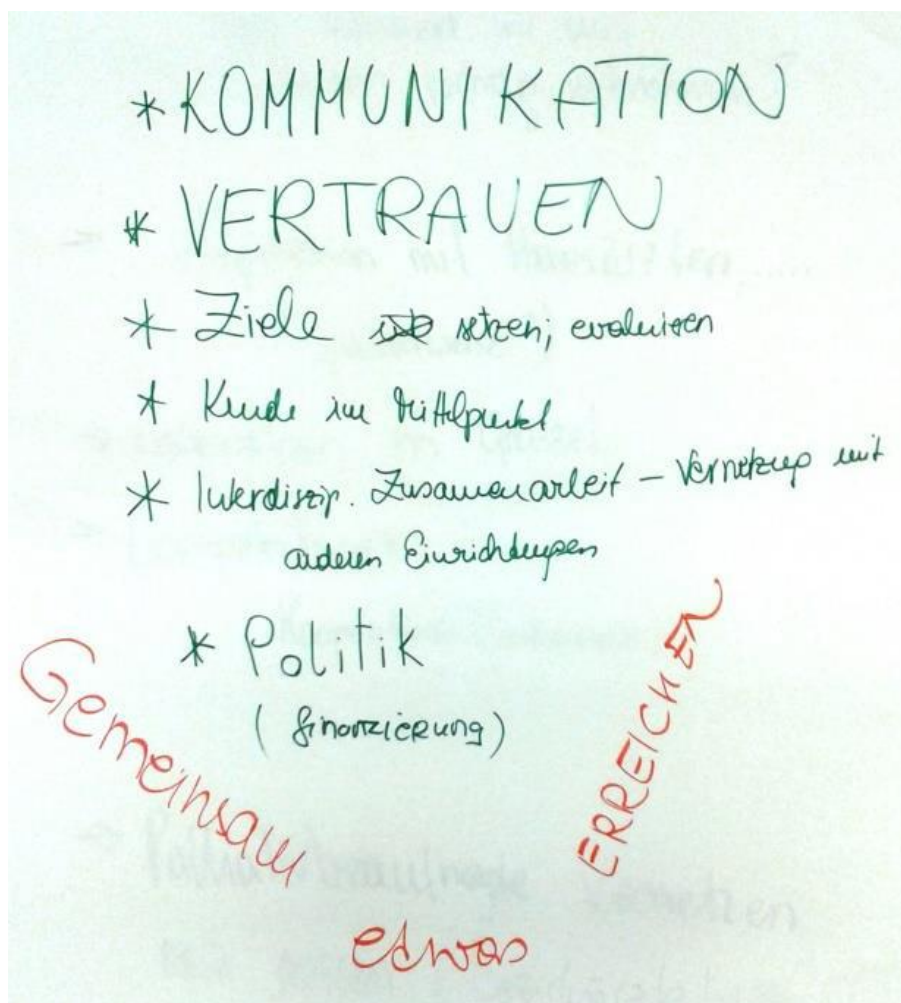 * KOMMUNIKATION
* VERTRAUEN
* Ziele setzen, evaluieren
* Kunde im Mittelpunkt
* Interdiszip. Zusammenarbeit – Vernetzung mit
anderen Einrichtungen
* Politik
(finanzierung)
Gemeinsam
etwas
ERREICHEN